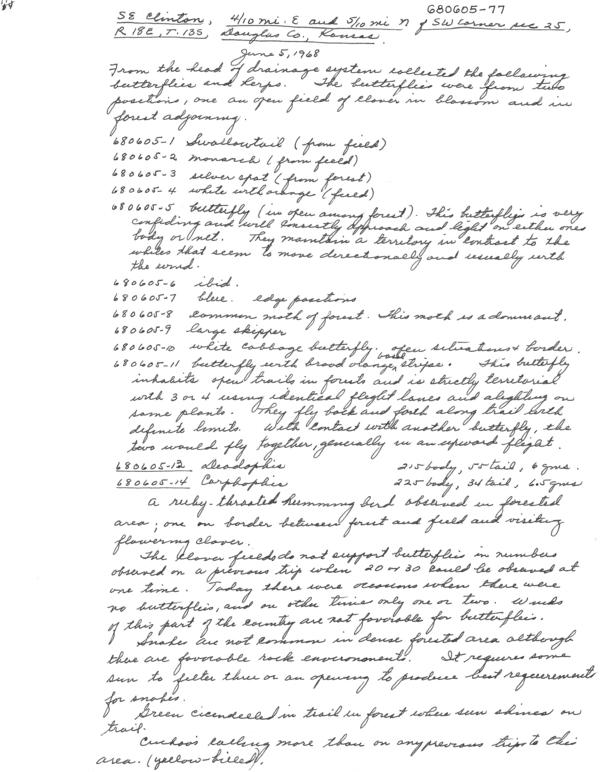 680605-77
SE Clinton, 4/10 mi. E and 5/10 mi N of SW Corner sec 25,
R 18E, T. 13S, Douglas Co., Kansas.
June 5, 1968
From the head of drainage system collected the following
butterflies and herps. The butterflies were from two
positions, one an open field of clover in blossom and in
forest adjoining.
680605-1 Swallowtail (from field)
680605-2 monarch (from field)
680605-3 silver spot (from forest)
680605-4 white with orange (field)
680605-5 butterfly (in open among forest). This butterflies is very
confiding and will constantly approach and light on either ones
body or net. They maintain a territory in contrast to the
whites that seem to move directionally and usually with
the wind.
680605-6 ibid.
680605-7 blue. edge positions
680605-8 common moth of forest. This moth is a dominant.
680605-9 large skipper
680605-10 white cabbage butterfly. open situations & border.
680605-11 butterfly with broad orange basal stripe. This butterfly
inhabits open trails in forests and is strictly territorial
with 3 or 4 using identical flight lanes and alighting on
same plants. They fly back and forth along trail with
definite limits. With contact with another butterfly, the
two would fly together, generally in an upward flight.
680605-12 Deadophis 215 body, 55 tail, 6 gms.
680605-14 Carphophis 225 body, 34 tail, 6.5 gms
A ruby-throated humming bird observed in forested
area; one on border between forest and field and visiting
flowering clover.
The clover fields do not support butterflies in numbers
observed on a previous trip when 20 or 30 could be observed at
one time. Today there were occasions when there were
no butterflies, and on other times only one or two. Winds
of this part of the country are not favorable for butterflies.
Snakes are not common in dense forested area although
there are favorable rock environments. It requires some
sun to filter thru or an opening to produce best requirements
for snakes.
Green cicendeelid in trail in forest where sun shines on
trail.
Cuckoos calling more than on any previous trips to this
area. (yellow-billed).